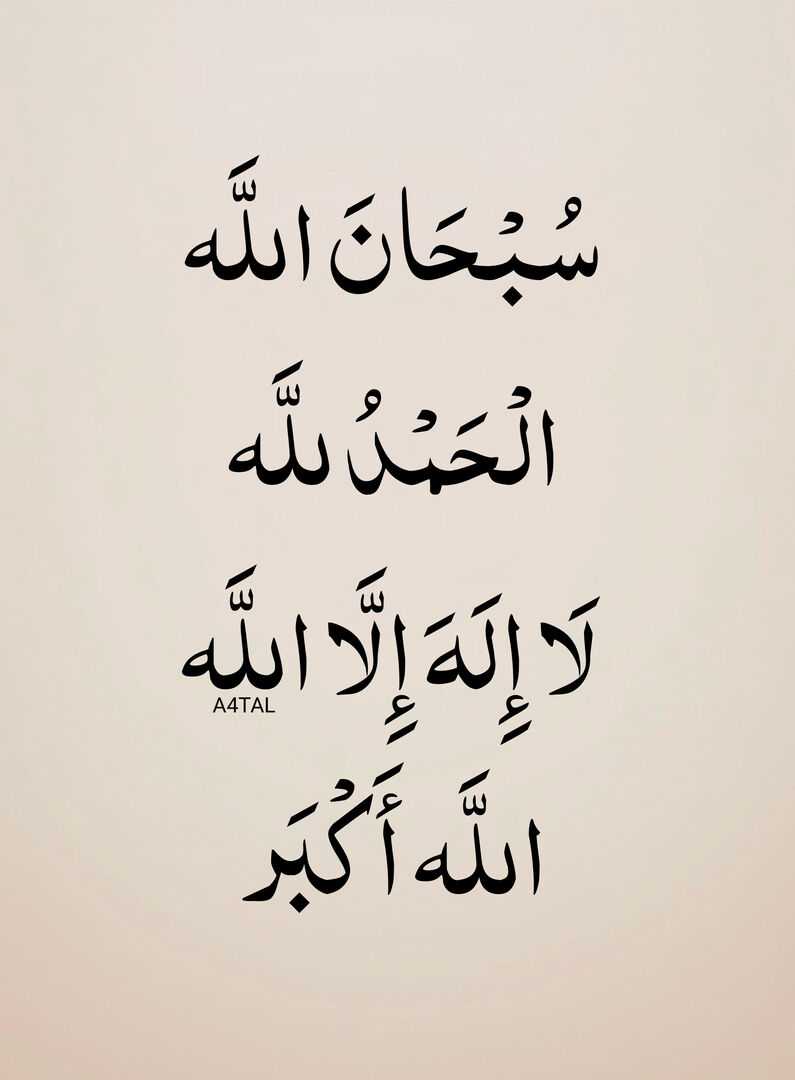 سُبْحَانَ اللَّه
الْحَمْدُ للَّه
لَا إِلَهَ إِلَّا اللَّه
A4TAL
اللَّه أَكْبَر